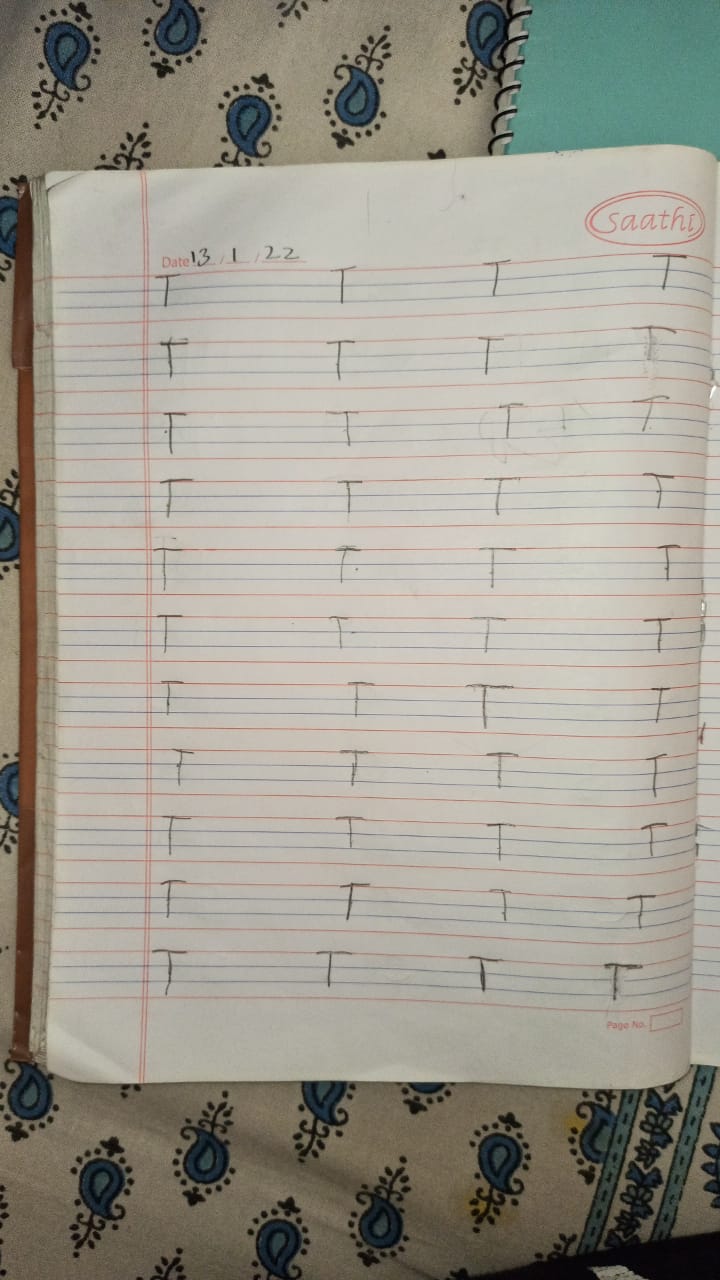 saathi
Date 13 / 1 / 22
T T T T
T T T T
T T T T
T T T T
T T T T
T T T T
T T T T
T T T T
T T T T
T T T T
T T T T
Page No.